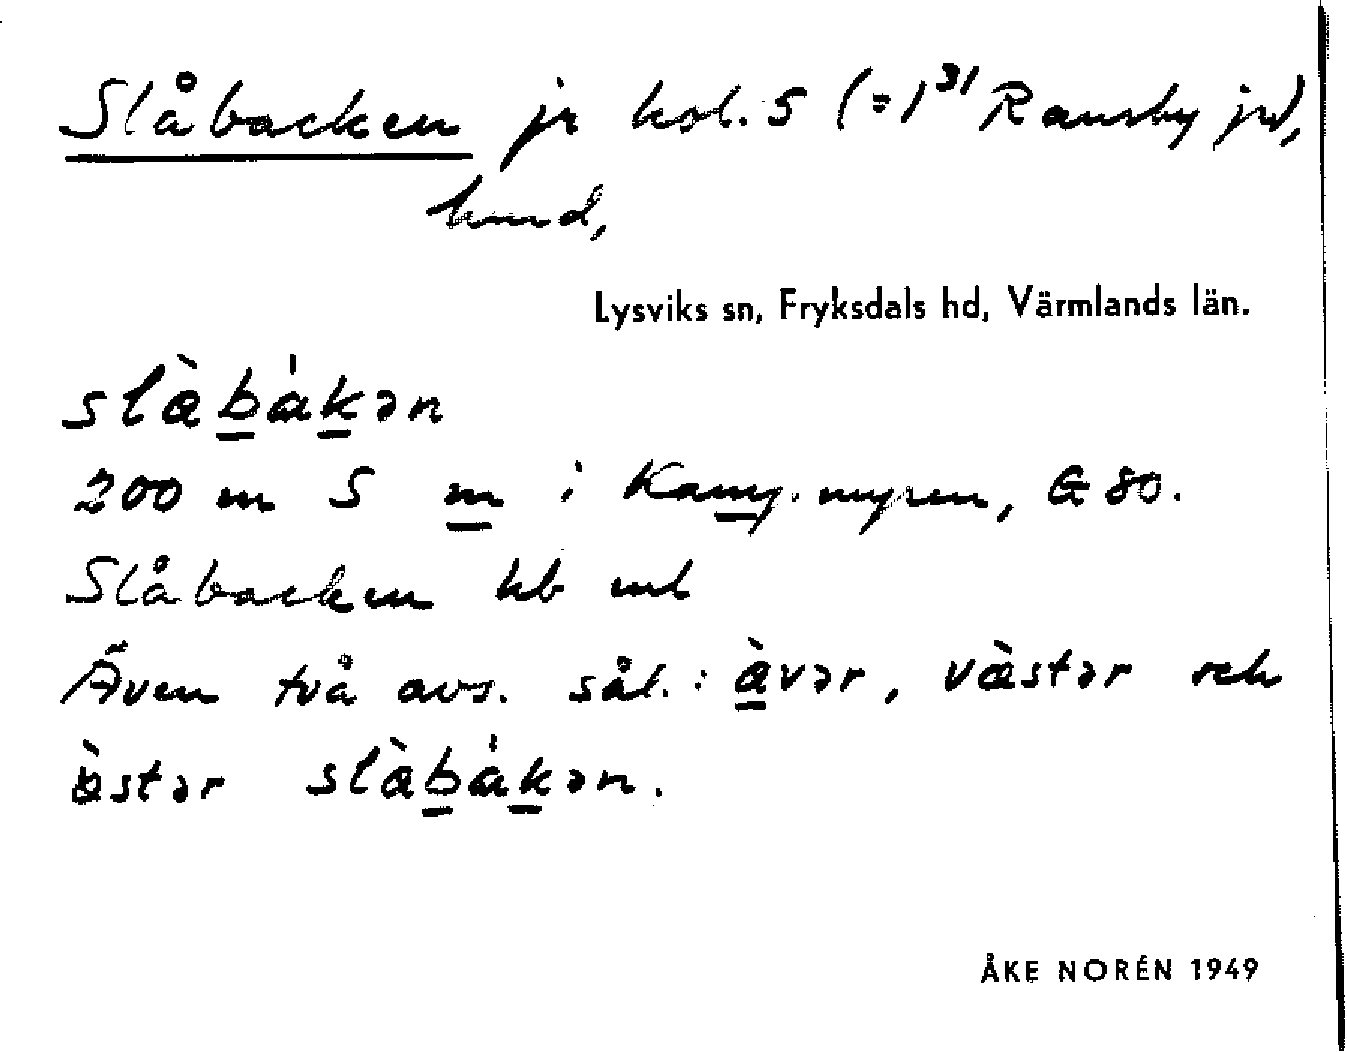 Slåbacken jr kol. 5 (=1³¹ Ransby jrd),
Lysviks sn, Fryksdals hd, Värmlands län.
slæ̀bákən
200 m S m i myren, G 80.
Slåbacken hb ml
Även två avs. sål.: àvər, væ̀stər och
östər slæ̀bákən.
ÅKE NORÉN 1949